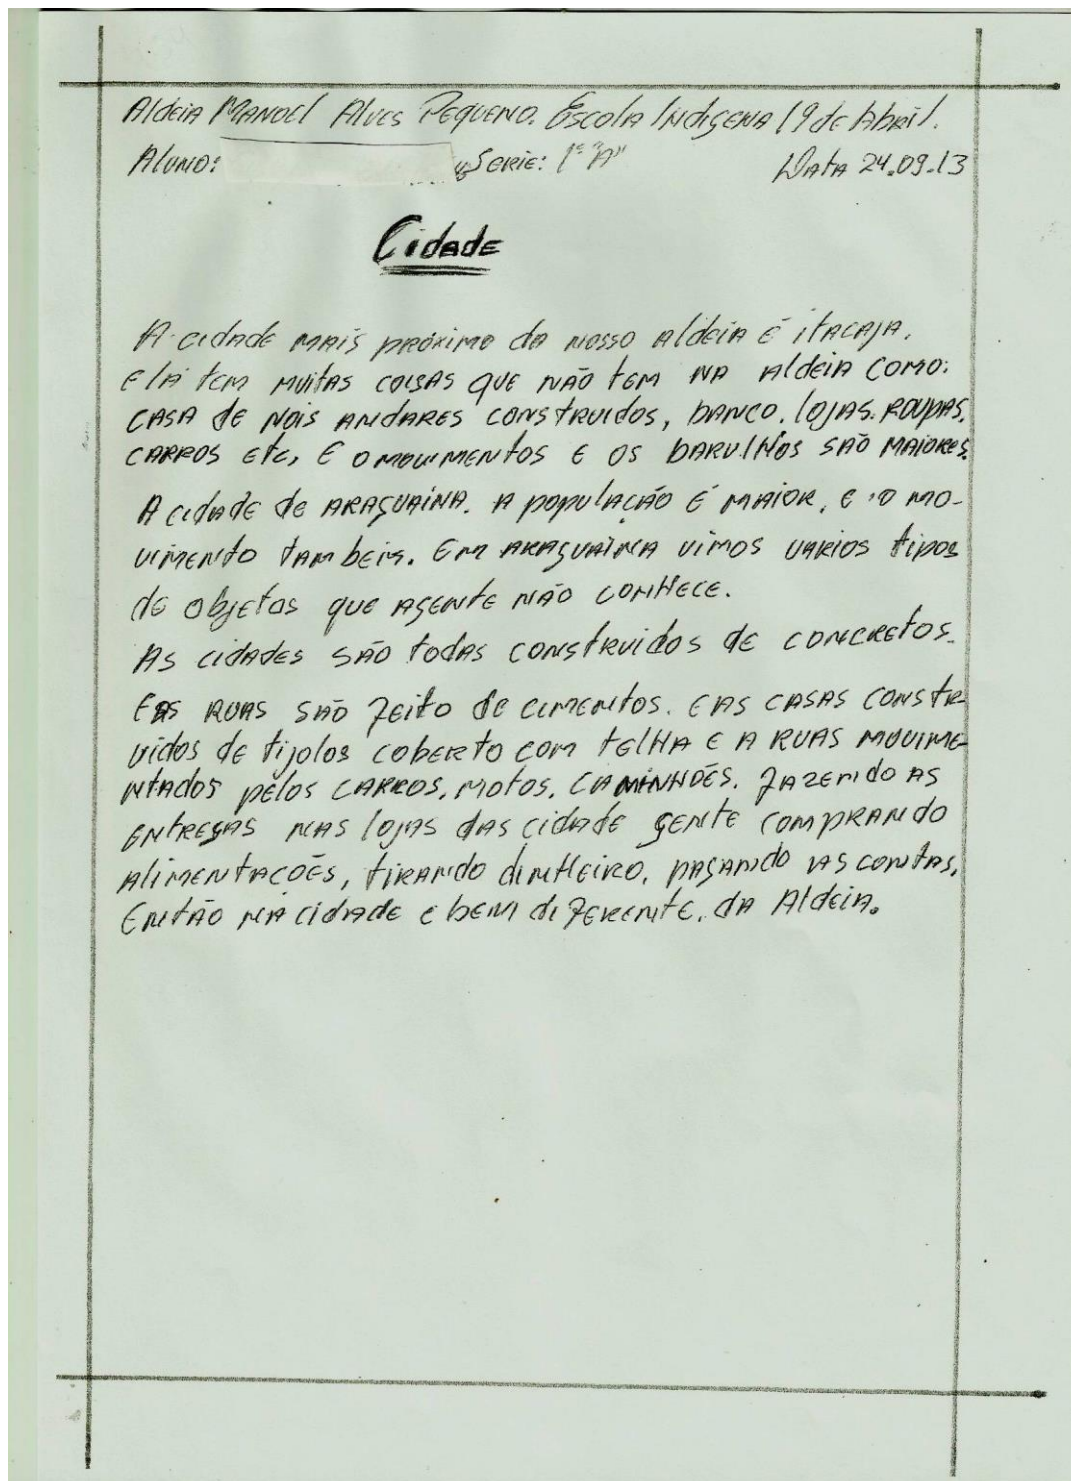 Aldeia Manoel Alves Pequeno. Escola Indigena 19 de Abril.
Aluno: Serie: 1ª "A" Data 24.09.13
Cidade
A cidade mais próximo da nosso aldeia é itacaja.
Ela tem muitas coisas que não tem na aldeia como:
casa de nois andares construidos, banco, lojas. roupas.
carros etc, E o movimentos e os barulhos são maiores.
A cidade de Araguaina. A população é maior, e o mo-
vimento tambeim. Em araguaina vimos varios tipos
de objetos que agente não conhece.
As cidades são todas construidos de concretos.
E as ruas são feito de cimentos. E as casas constr-
uidos de tijolos coberto com telha e a ruas movime-
ntados pelos carros, motos, caminhões. fazendo as
entregas nas lojas das cidade gente comprando
alimentações, tirando dinheiro, pagando as contas.
Então na cidade e bem diferente. da Aldeia.